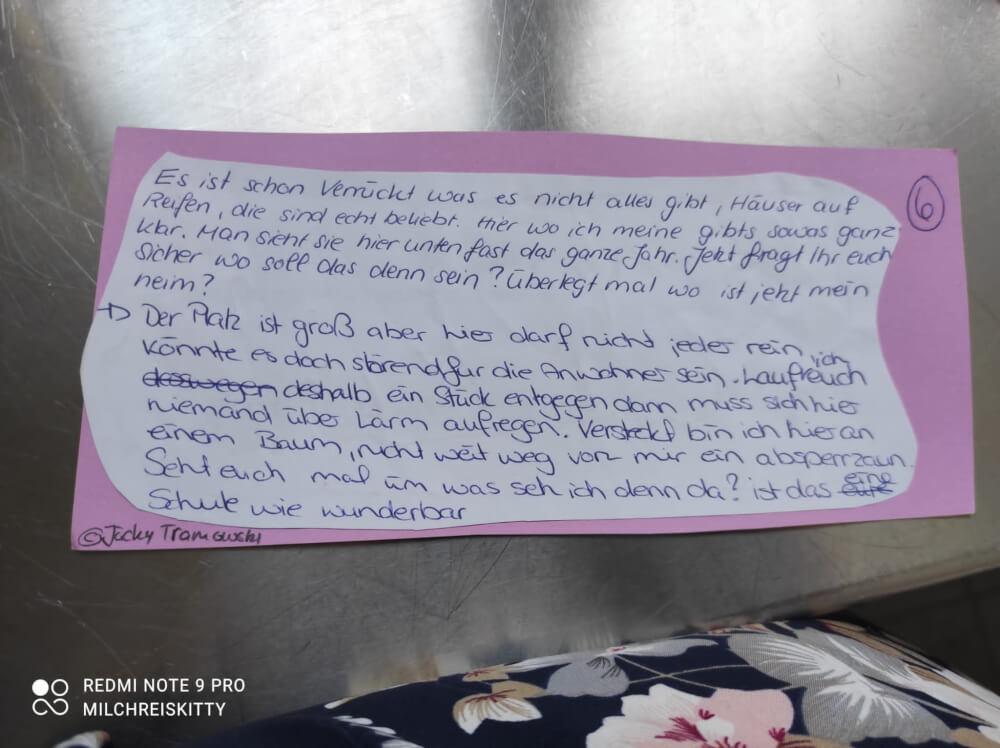 Es ist schon Verrückt was es nicht alles gibt, Häuser auf
Reifen, die sind echt beliebt. Hier wo ich meine gibts sowas ganz
klar. Man sieht sie hier unten fast das ganze Jahr. Jetzt fragt Ihr euch
Sicher wo soll das denn sein? Überlegt mal wo ist jetzt mein
heim?
→ Der Platz ist groß aber hier darf nicht jeder rein, ich
könnte es doch störend für die Anwohner sein. Lauft euch
deswegen deshalb ein Stück entgegen dann muss sich hier
niemand über Lärm aufregen. Versteckt bin ich hier an
einem Baum, nicht weit weg von mir ein absperrzaun.
Seht euch mal um was seh ich denn da? ist das eine
Schule wie wunderbar
6
©Jacky Tramowski
REDMI NOTE 9 PRO
MILCHREISKITTY